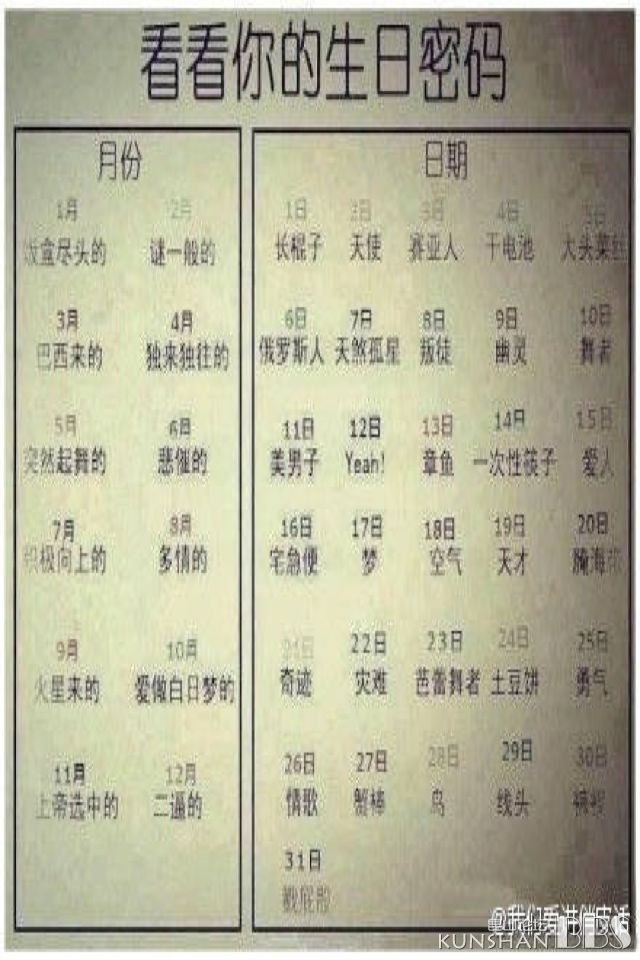 看看你的生日密码
月份
1月 2月
尽头的 谜一般的
3月 4月
巴西来的 独来独往的
5月 6月
突然起舞的 悲催的
7月 8月
积极向上的 多情的
9月 10月
火星来的 爱做白日梦的
11月 12月
上帝选中的 二逼的
日期
1日 2日 3日 4日 5日
长棍子 天使 赛亚人 干电池 大头菜
6日 7日 8日 9日 10日
俄罗斯人 天煞孤星 叛徒 幽灵 舞者
11日 12日 13日 14日 15日
美男子 Yeah! 章鱼 一次性筷子 爱人
16日 17日 18日 19日 20日
宅急便 梦 空气 天才 腌海带
21日 22日 23日 24日 25日
奇迹 灾难 芭蕾舞者 土豆饼 勇气
26日 27日 28日 29日 30日
情歌 蟹棒 鸟 线头
31日
戳屁股
KUNSHAN BBS